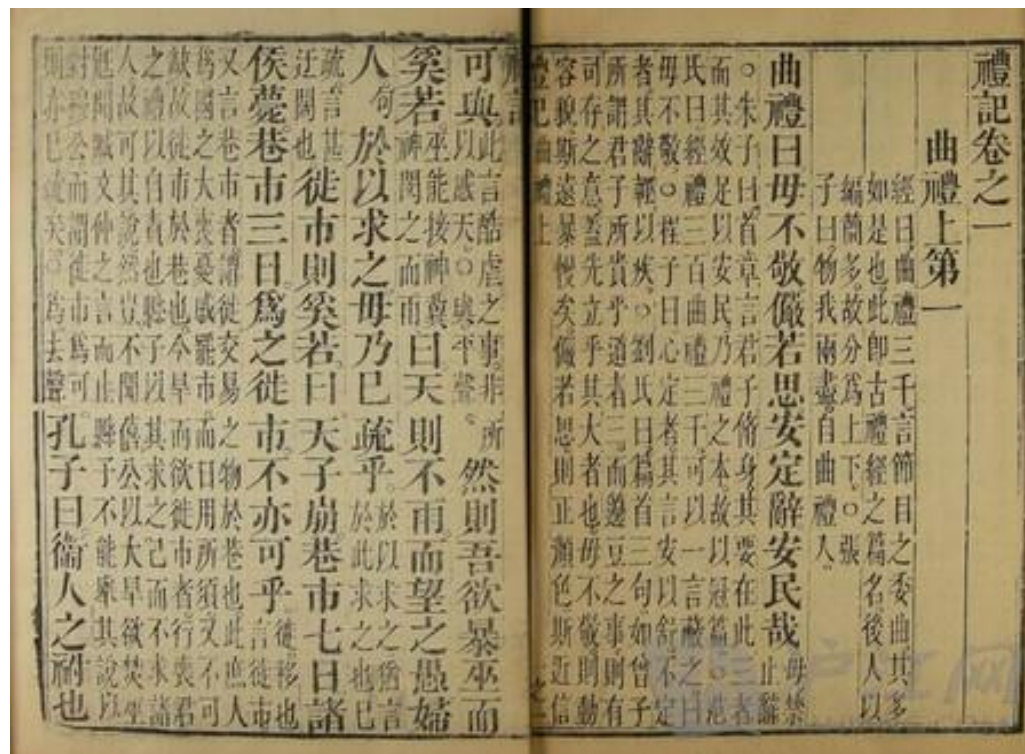 禮記卷之一
曲禮上第一
經曰曲禮三千言節目之委曲其多
如是也此即古禮經之篇名後人以
編簡多故分爲上下○張
子曰物我兩盡自曲禮入
曲禮曰毋不敬儼若思安定辭安民哉
毋禁
止辭
○朱子曰首章言君子脩身其要在此
者
而其效足以安民乃禮之本故以冠篇○范
氏曰經禮三百曲禮三千可以一言蔽之曰
毋不敬○程子曰心定者其言安以舒不定
者其辭輕以疾○劉氏曰篇首三句如曾子
所謂君子所貴乎道者三而籩豆之事則有
司存之意蓋先立乎其大者也毋不敬則動
容貌斯遠暴慢矣儼若思則正顏色斯近信
禮記曲禮上
可與
此言酷虐之事非所
以感天○與平聲
然則吾欲暴巫而
奚若
巫能接神冀
神閔之而雨
曰天則不雨而望之愚婦
人句於以求之毋乃已疏乎
於以求之猶言
於此求之也已
疏言甚
迂闊也
徙市則奚若曰天子崩巷市七日諸
侯薨巷市三日爲之徙市不亦可乎
徙移也
言徙市
又言巷市者謂徙交易之物於巷也此庶人
爲國之大喪憂戚罷市而日用所須又不可
缺故徙市於巷也今旱而欲徙市者行喪君
之禮以自責也縣子以其求之己而不求諸
人故可其說然豈不聞僖公以大旱欲焚巫
尫聞臧文仲之言而止縣子不能舉其說以
對穆公而謂徙市爲可
則亦已疏矣○爲去聲
孔子曰衞人之祔也